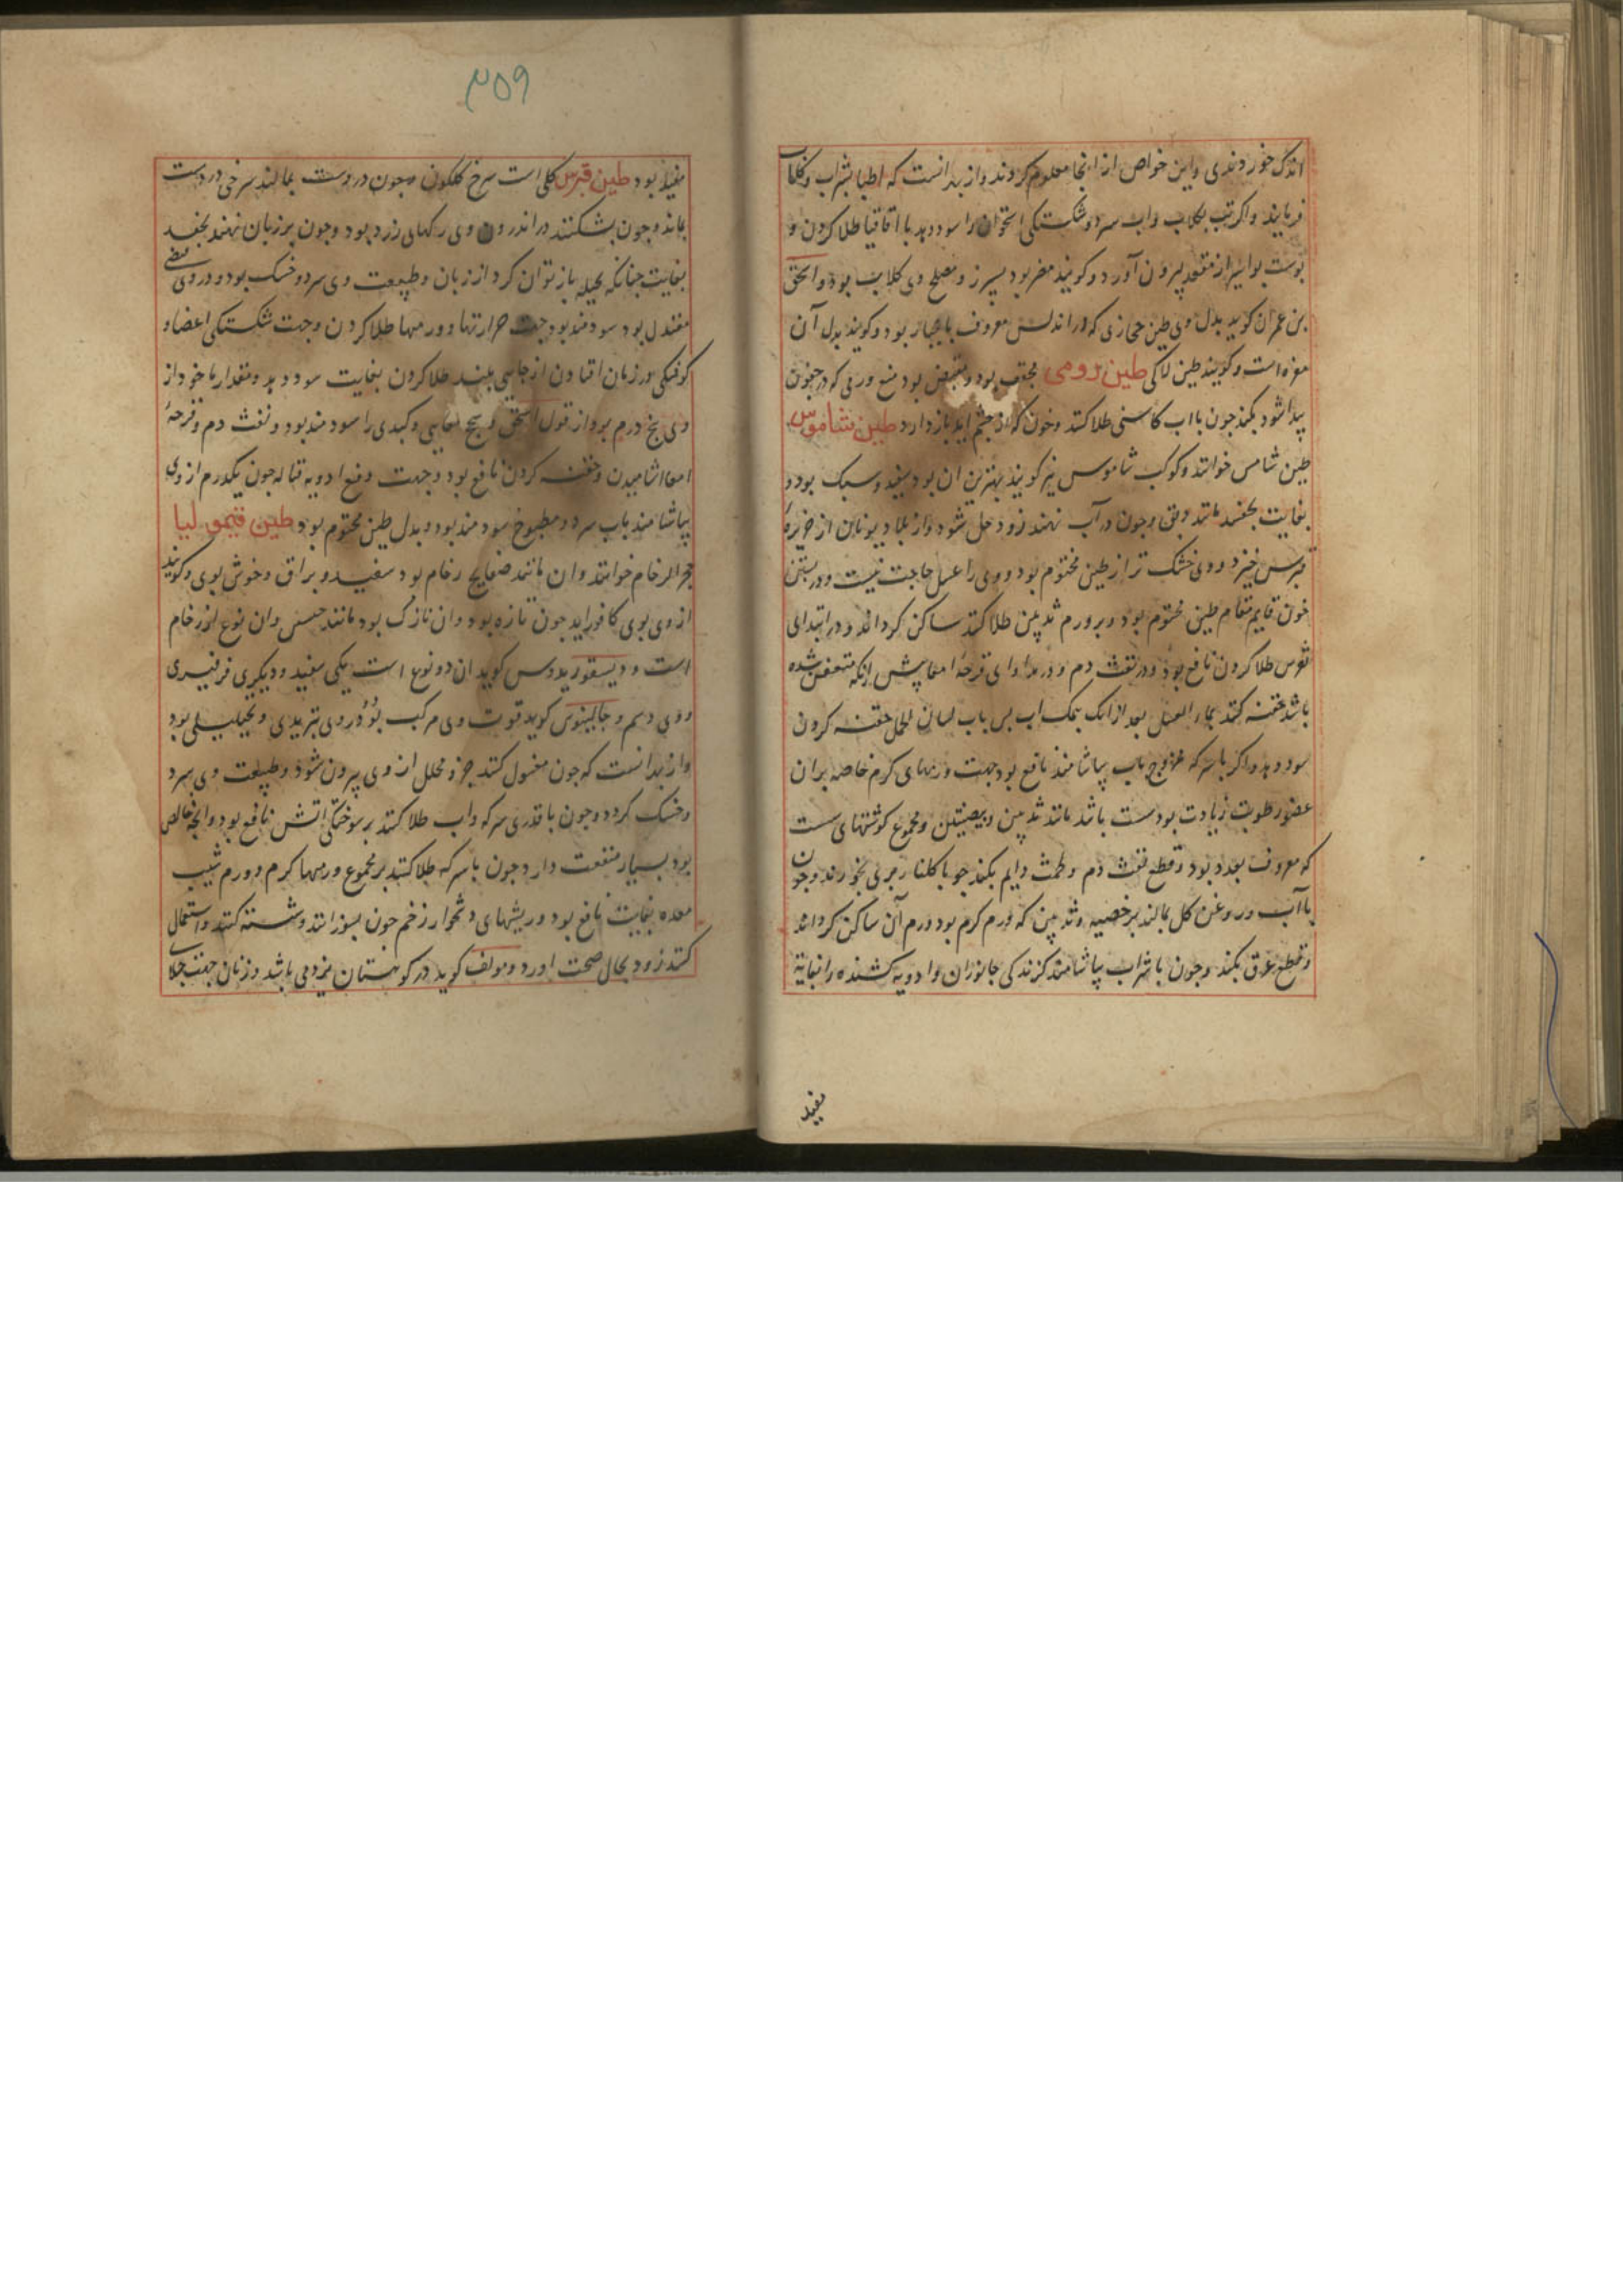 اندک خوردندی و این خواص از انجا معلوم کردند و از بدانست که اطبا بشراب و کلاب
فرمایند و اکر تب بکلاب و اب سرد و شکستکی استخوان را سود دهد با اقاقیا طلا کردن و
بوست بواسیر از مقعد بیرون آورد و کویند مضر بود بسپرز و مصلح وی کلاب بود و اسحق
بن عمران کوید بدل وی طین حجازی که در اندلس معروف بود و کویند بدل آن
مغره است و کویند طین لاکی طین رومی مجفف بود و بود منع ورمی که در جفون
پیدا شود بکند جون بااب کاسنی طلا کنند و خون که از جشم اید باز دارد طین شاموس
طین شامس خوانند و کوکب شاموس نیز کویند بهترین ان بود سفید و سبک بود و
بغایت بجفسد مانند دبق و جون در آب نهند زود حل شود و از بلاد یونان از جزیره
قبرس خیزد و وی خشک تر از طین مختوم بود و وی را غسل حاجت نیست و در بستن
خون قایم مقام طین مختوم بود و بر ورم ثدیین طلا کنند ساکن کرداند و در ابتدای
نقرس طلا کردن نافع بود و در نفث دم و در مداوای قرحهٔ امعا پیش ازانکه متعفن شده
باشد حقنه کنند بماء العسل بعد ازانک بنمک اب پس باب لسان الحمل حقنه کردن
سود دهد و اکر باسرکه ممزوج باب بیاشامند نافع بود جهت ورمهای کرم خاصه بران
عضو رطوبت زیادت بود سست باشد مانند ثدیین و بیضتین و مجموع کوشتهای سست
که معروف بغدد بود و قطع نفث دم و طمث دایم بکند جو با کلنار بری بخورند و جون
باآب و روغن کل بمالند بر خصیه و ثدیین که ورم کرم بود ورم آن ساکن کرداند
و قطع عرق بکند و جون باشراب بیاشامند کزندکی جانوران و ادویه کشنده را بغایة
مفید
۳۵۹
مفید بود طین قبرس کلی است سرخ کلکون و جون در دست بمالند سرخی در دست
بماند و جون بشکنند در اندرون وی رکهای زرد بود و جون بر زبان نهند بجفسد
بغایت جنانکه بحیله باز توان کرد از زبان و طبیعت وی سرد و خشک بود و در وی قبضی
معتدل بود سودمند بود جهت حرارتها و ورمها طلا کردن و جهت شکستکی اعضا و
کوفتکی و در زمان افتادن از جایی بلند طلا کردن بغایت سود دهد و مقدار ماخوذ از
وی پنج درم بود از قول اسحق و سحج امعایی و کبدی را سودمند بود و نفث دم و قرحهٔ
امعا اشامیدن و حقنه کردن نافع بود و جهت دفع ادویه قتاله جون یکدرم از وی
بیاشامند باب سرد و مطبوخ سودمند بود و بدل طین مختوم بود طین قیمولیا
حجر الرخام خوانند و ان مانند صفایح رخام بود سفید و براق و خوش بوی و کویند
از وی بوی کافور اید جون تازه بود و ان نازک بود مانند جبس و ان نوع از رخام
است و دیسقوریدوس کوید ان دو نوع است یکی سفید و دیکری فرفیری
و وی دسم و جالینوس کوید قوت وی مرکب بود در وی تبریدی و تحلیلی بود
و از بدانست که جون مغسول کنند جزو محلل از وی بیرون شود و طبیعت وی سرد
و خشک کردد و جون باقدری سرکه و اب طلا کنند بر سوختکی اتش نافع بود و انجه خالص
بود بسیار منفعت دارد جون باسرکه طلا کنند بر مجموع ورمها کرم و ورم شیب
معده بغایت نافع بود و ریشهای دشخوار زخم جون بسوزانند و شسته کنند و استعمال
کنند زود بحال صحت اورد و مولف کوید در کوهستان یزد می باشد و زنان جهت جلای